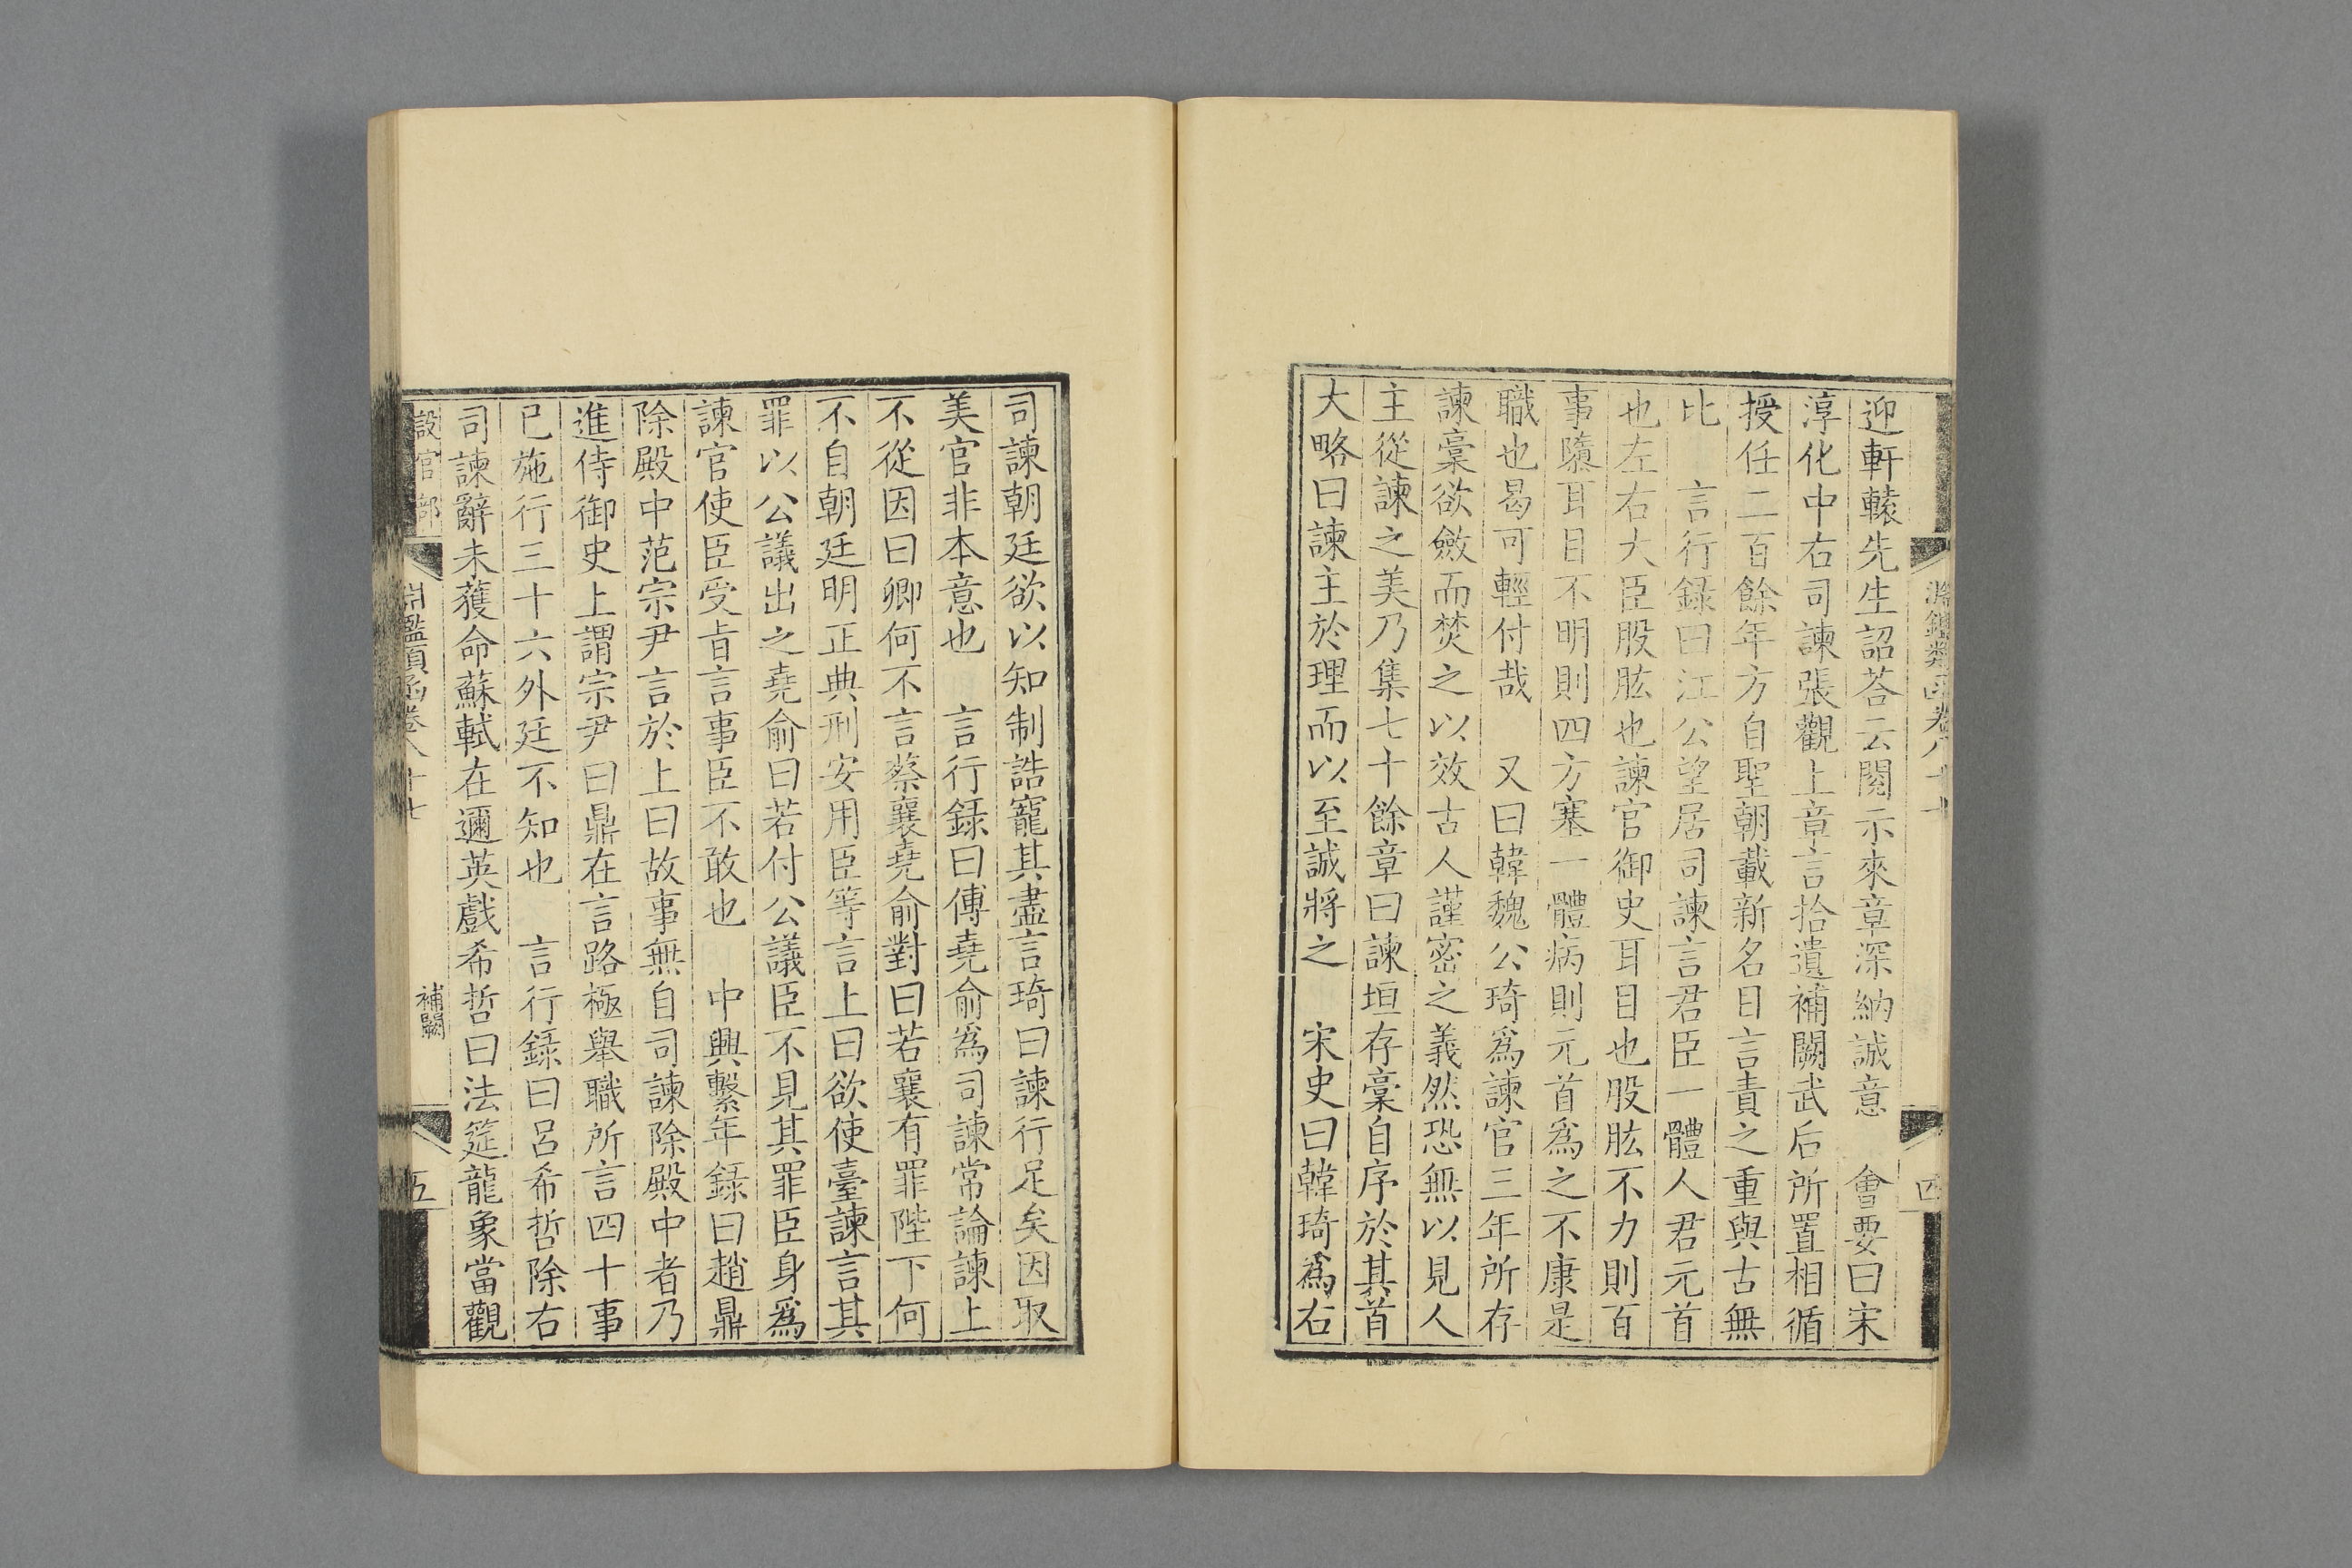 淵鑑類函卷八十七
四
迎軒轅先生詔荅云閱示來章深納誠意　會要曰宋
淳化中右司諫張觀上章言拾遺補闕武后所置相循
授任二百餘年方自聖朝載新名目言責之重與古無
比　言行録曰江公望居司諫言君臣一體人君元首
也左右大臣股肱也諫官御史耳目也股肱不力則百
事隳耳目不明則四方塞一體病則元首爲之不康是
職也曷可輕付哉　又曰韓魏公琦爲諫官三年所存
諫稾欲斂而焚之以效古人謹密之義然恐無以見人
主從諫之美乃集七十餘章曰諫垣存稾自序於其首
大略曰諫主於理而以至誠將之　宋史曰韓琦爲右
司諫朝廷欲以知制誥寵其盡言琦曰諫行足矣因取
美官非本意也　言行録曰傅堯俞爲司諫常論諫上
不從因曰卿何不言蔡襄堯俞對曰若襄有罪陛下何
不自朝廷明正典刑安用臣等言上曰欲使臺諫言其
罪以公議出之堯俞曰若付公議臣不見其罪臣身爲
諫官使臣受㫖言事臣不敢也　中興繫年録曰趙鼎
除殿中范宗尹言於上曰故事無自司諫除殿中者乃
進侍御史上謂宗尹曰鼎在言路極舉職所言四十事
已施行三十六外廷不知也　言行録曰呂希哲除右
司諫辭未獲命蘇軾在邇英戲希哲曰法筵龍象當觀
設官部
淵鑑類函卷八十七
補闕
五